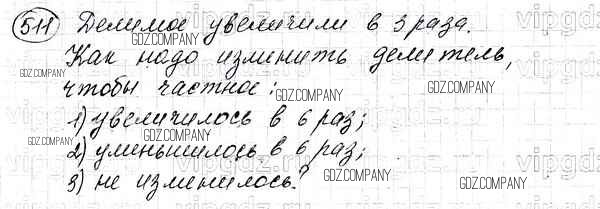 511 Делимое увеличили в 3 раза.
Как надо изменить делитель,
чтобы частное:
1) увеличилось в 6 раз;
2) уменьшилось в 6 раз;
3) не изменилось?
GDZ.COMPANY
GDZ.COMPANY
GDZ.COMPANY
GDZ.COMPANY
GDZ.COMPANY
GDZ.COMPANY
GDZ.COMPANY
GDZ.COMPANY
GDZ.COMPANY